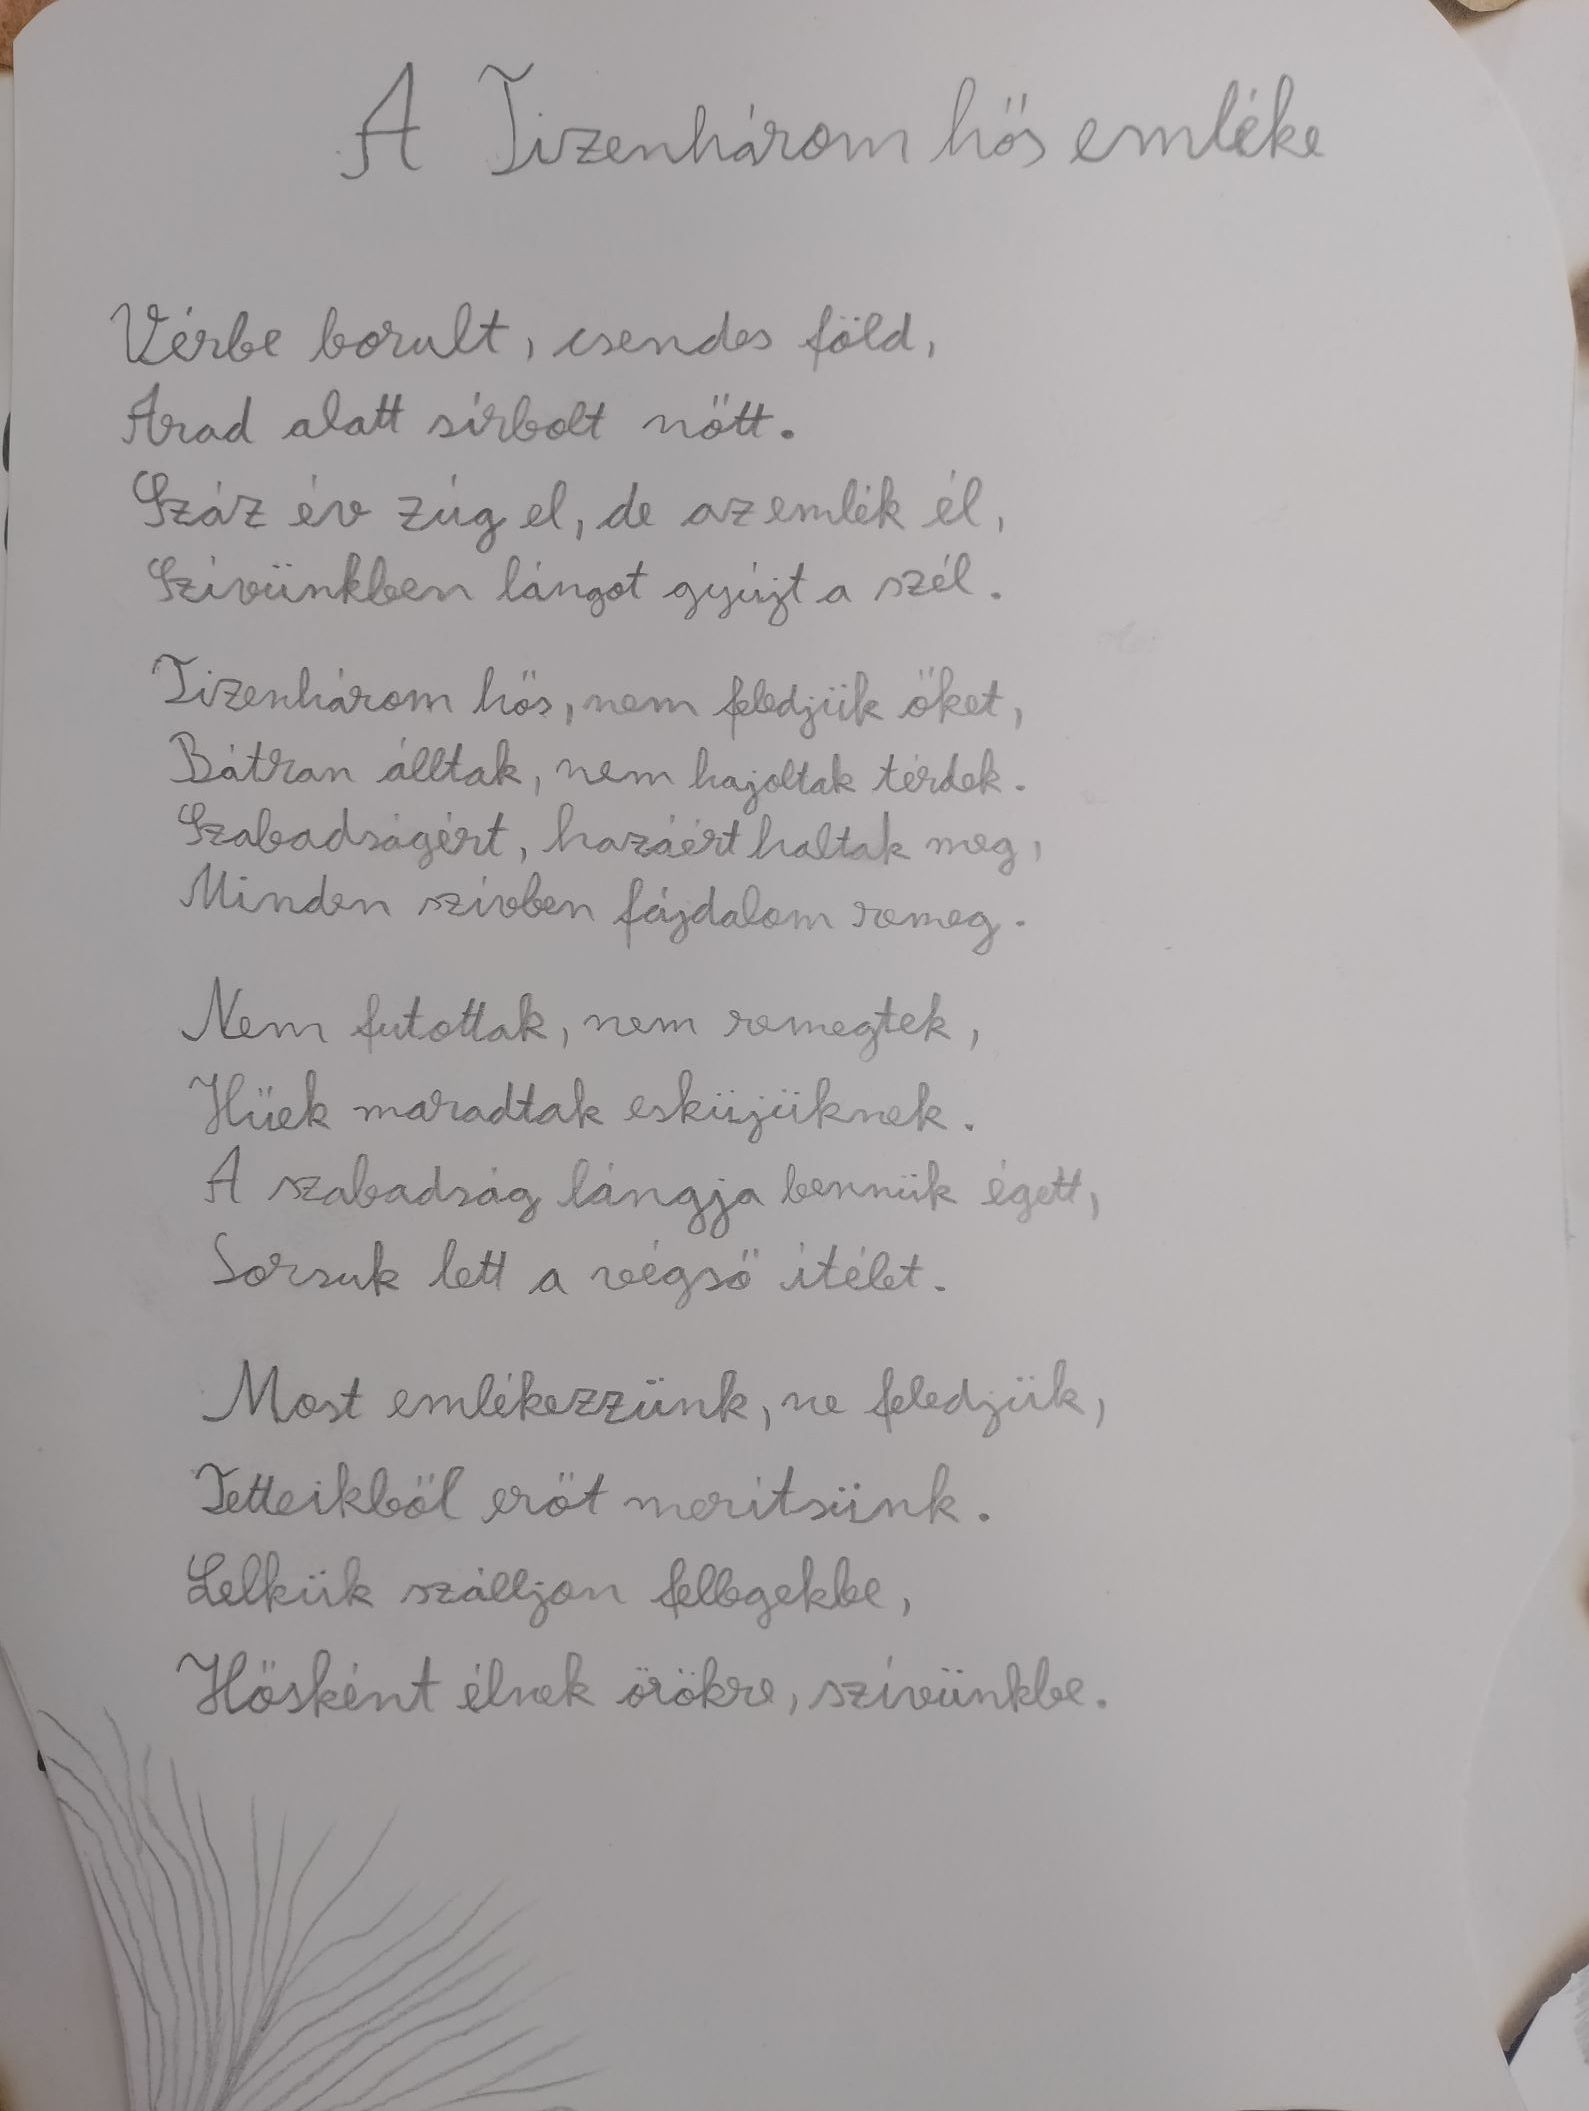 A Tizenhárom hős emléke
Vérbe borult, csendes föld,
Arad alatt sírbolt nőtt.
Száz év zúg el, de az emlék él,
Szívünkben lángot gyújt a szél.
Tizenhárom hős, nem feledjük őket,
Bátran álltak, nem hajoltak térdek.
Szabadságért, hazáért haltak meg,
Minden szívben fájdalom remeg.
Nem futottak, nem remegtek,
Hűek maradtak esküjüknek.
A szabadság lángja bennük égett,
Sorsuk lett a végső ítélet.
Most emlékezzünk, ne feledjük,
Tetteikből erőt merítsünk.
Lelkük szálljon fellegekbe,
Hősként élnek örökre, szívünkbe.